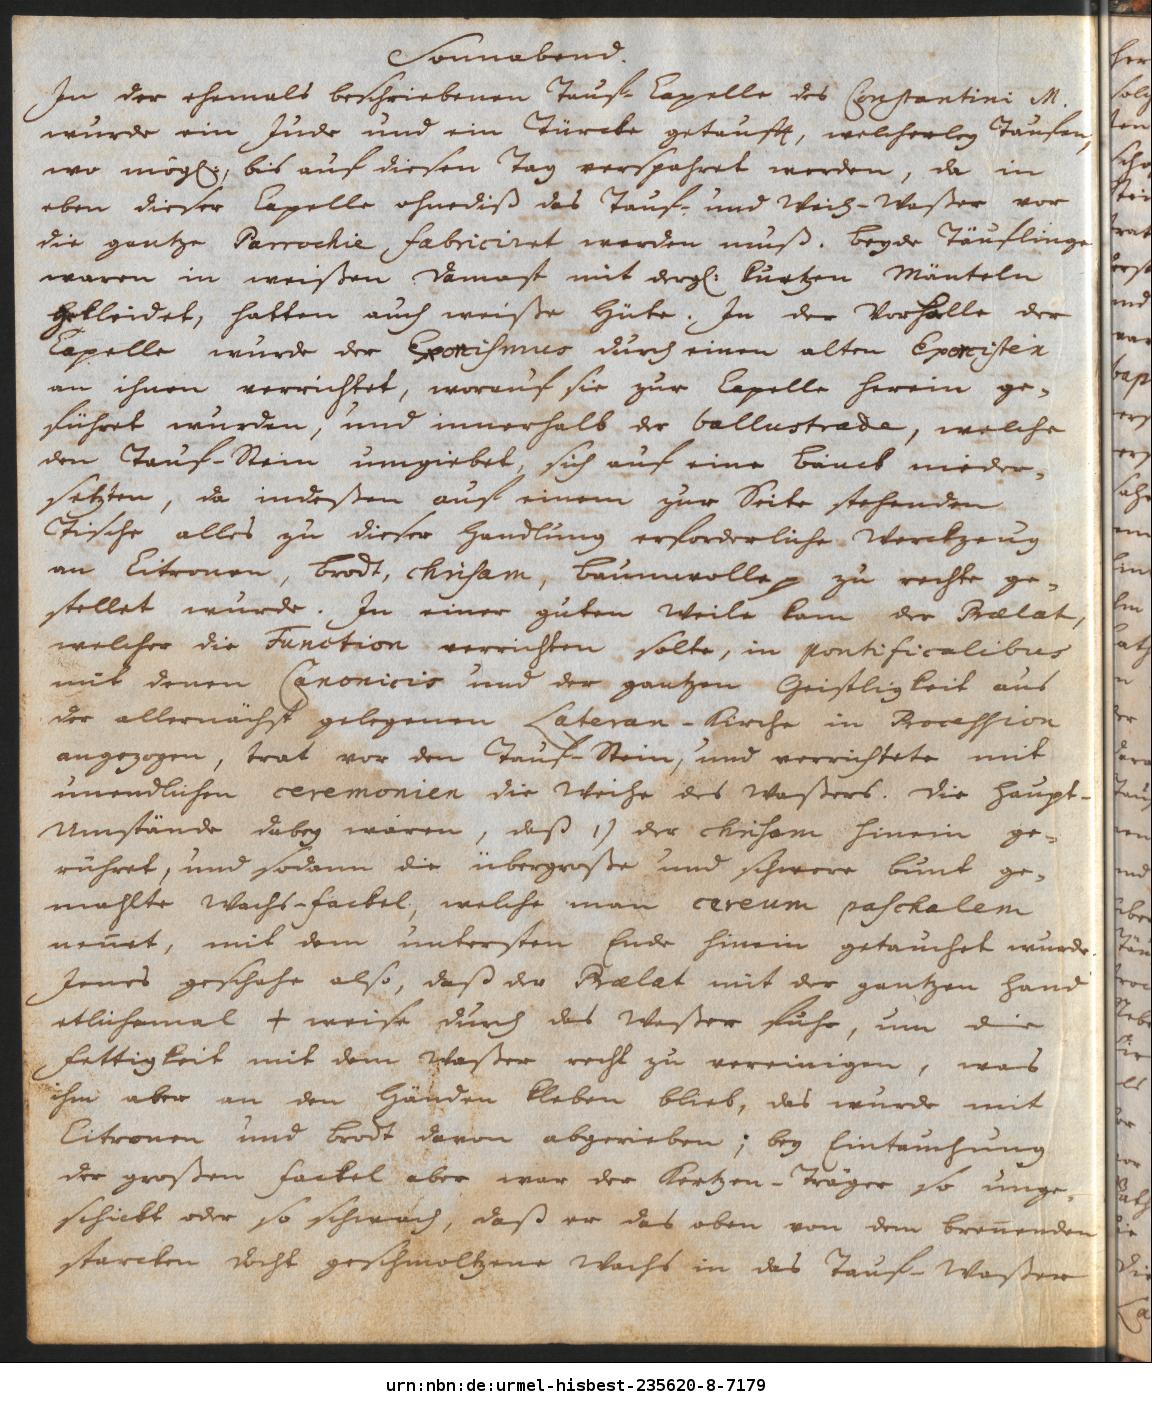 Sonnabend.
In der ehemals beschriebenen Tauf-Capelle des Constantini M.
wurde ein Jude und ein Türcke getaufft, welcherley Taufen,
wo mögl:, bis auf diesen Tag verspahret werden, da in
eben dieser Capelle ohnediß das Tauf- und Weih-Waßer vor
die gantze Parrochie fabriciret werden muß. Beyde Täuflinge
waren in weißen Damast mit dergl: kurtzen Mänteln
gekleidet, hatten auch weiße Hüte. In der Vorhalle der
Capelle wurde der Exorcismus durch einen alten Exorcisten
an ihnen verrichtet, worauf sie zur Capelle herein ge-
führet wurden, und innerhalb der ballustrade, welche
den Tauf-Stein umgiebet, sich auf eine Banck nieder-
setzten, da indeßen auf einem zur Seite stehenden
Tische alles zu dieser Handlung erforderliche Werckzeug
an Citronen, Brodt, chrisam, Baumwolle zu rechte ge-
stellet wurde. In einer guten Weile kam der Prælat,
welcher die Function verrichten solte, in pontificalibus
mit denen Canonicis und der gantzen Geistligkeit aus
der allernächst gelegenen Lateran-Kirche in Procession
angezogen, trat vor den Tauf-Stein, und verrichtete mit
unendlichen ceremonien die Weihe des Waßers. Die Haupt-
Umstände dabey waren, daß 1) der chrisam hinein ge-
rühret, und sodann die übergroße und schwere bunt ge-
mahlte Wachs-Fackel, welche man cereum paschalem
neñet, mit dem untersten Ende hinein getauchet wurde.
Jenes geschahe also, daß der Prælat mit der gantzen Hand
etlichemal + weise durch das Waßer fuhr, um die
Fettigkeit mit dem Waßer recht zu vereinigen, was
ihm aber an den Händen kleben blieb, das wurde mit
Citronen und Brodt davon abgerieben; bey Eintauchung
der großen Fackel aber war der Kertzen-Träger so unge-
schickt oder so schwach, daß er das oben von dem breñenden
starcken Docht geschmoltzene Wachs in das Tauf-Waßer
urn:nbn:de:urmel-hisbest-235620-8-7179